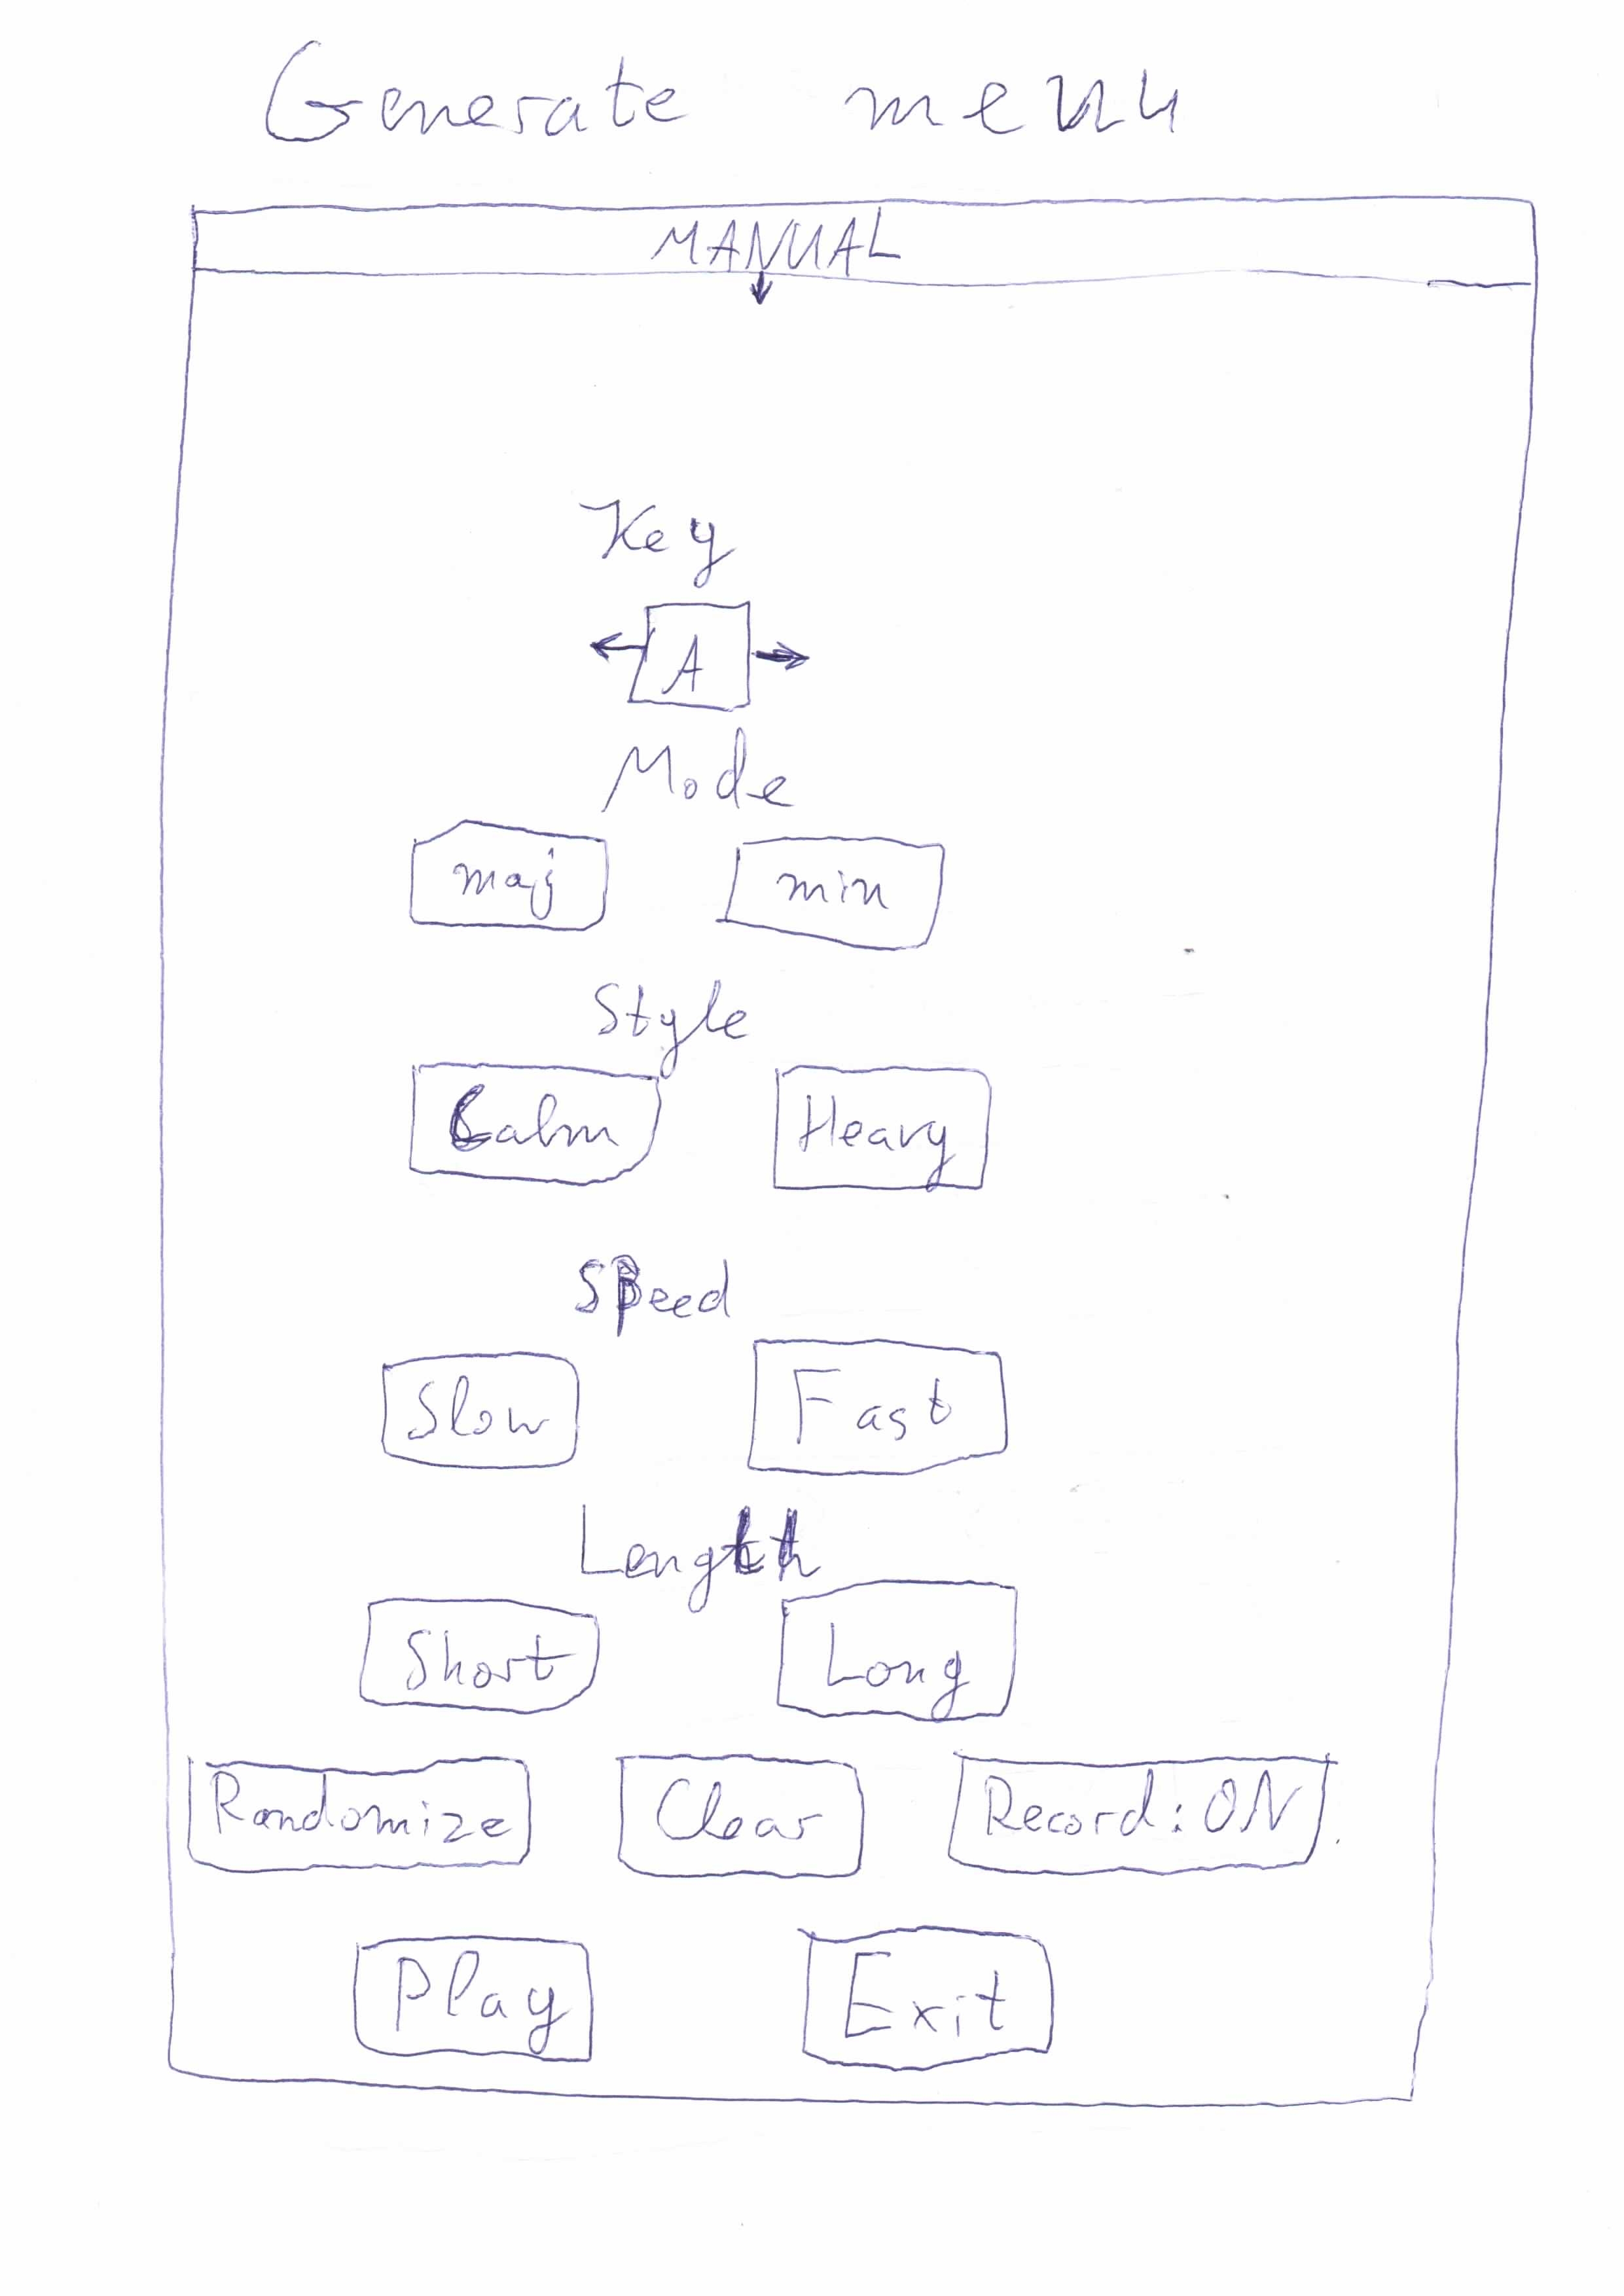 Generate menu
MANUAL
Key
A
Mode
maj min
Style
Calm Heavy
Speed
Slow Fast
Length
Short Long
Randomize Clear Record: ON
Play Exit